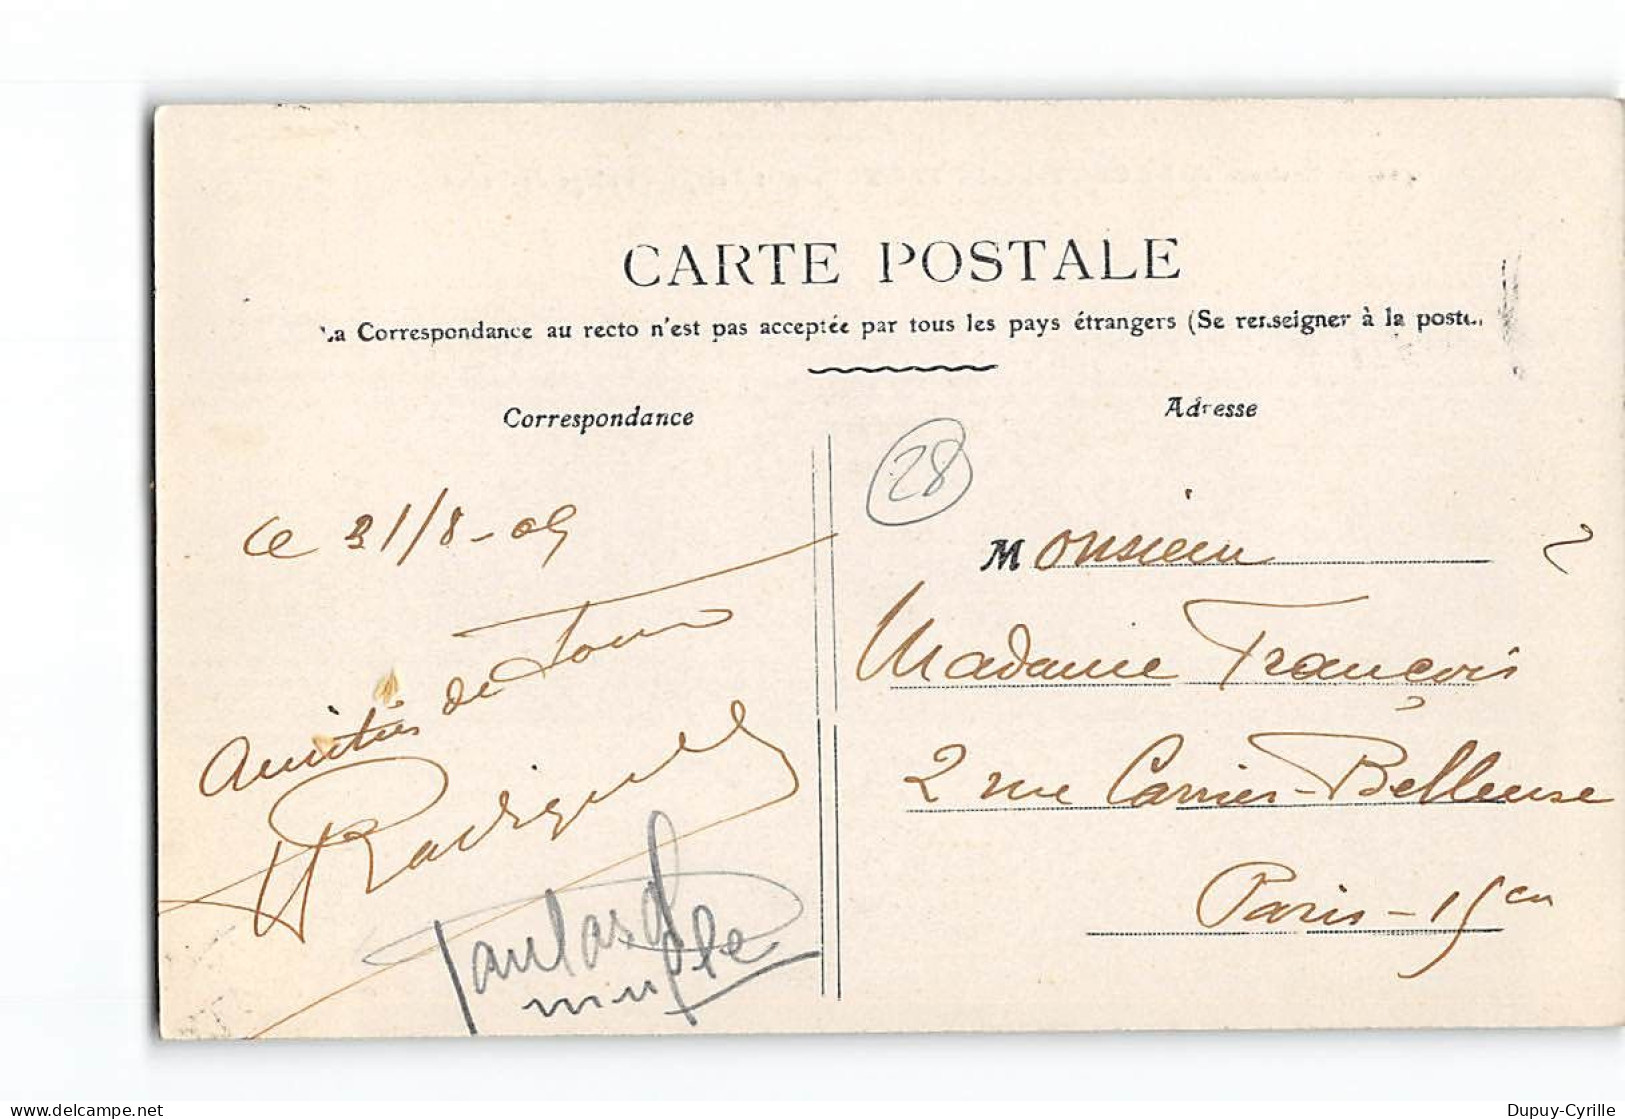 CARTE POSTALE
La Correspondance au recto n'est pas acceptée par tous les pays étrangers (Se renseigner à la poste.)
Correspondance
Adresse
28
Ce 31/8-09
Amitiés de Tous
Monsieur
Madame François
2 rue Carrier-Belleuse
Paris-15en
simple
Dupuy-Cyrille